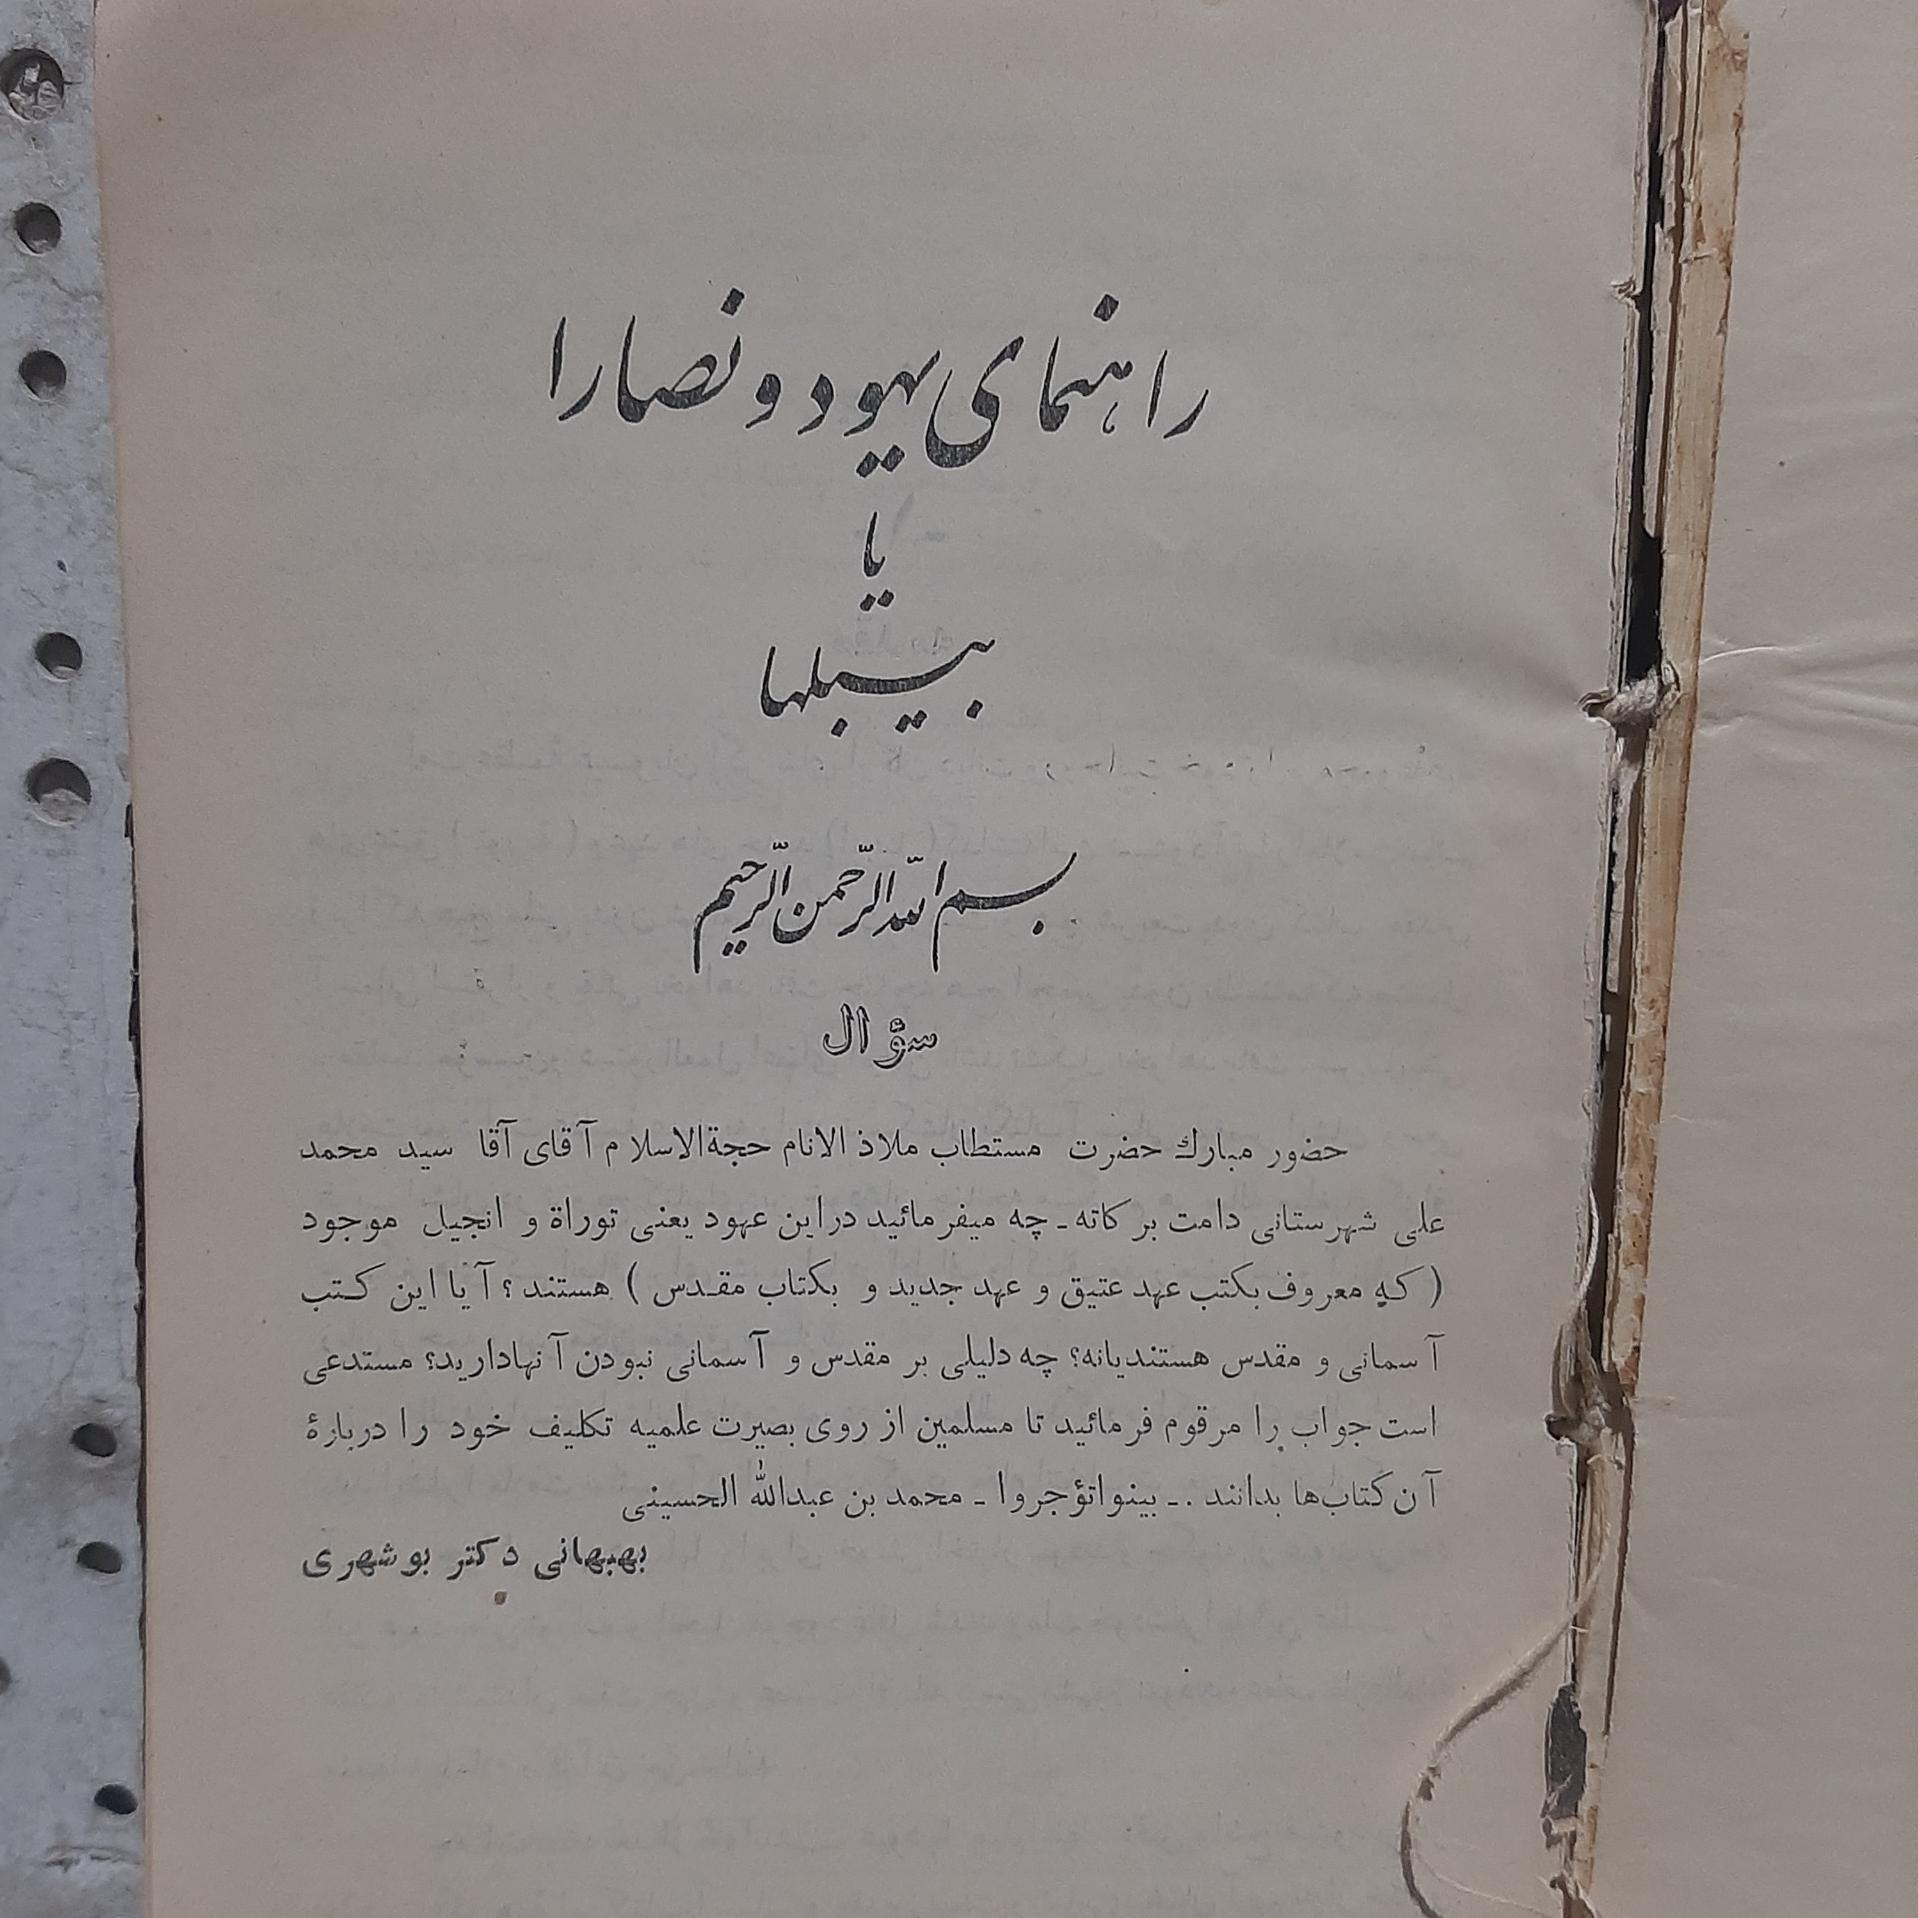 راهنمای یهود و نصارا
یا
بیبلها
بسم الله الرّحمن الرّحیم
سؤال
حضور مبارك حضرت مستطاب ملاذ الانام حجةالاسلام آقای آقا سید محمد
علی شهرستانی دامت بركاته ـ چه میفرمائید دراین عهود یعنی توراة و انجیل موجود
( که معروف بکتب عهد عتیق و عهد جدید و بکتاب مقـدس ) هستند ؟ آیا این کـتب
آسمانی و مقدس هستندیانه؟ چه دلیلی بر مقدس و آسمانی نبودن آنهادارید؟ مستدعی
است جواب را مرقوم فرمائید تا مسلمین از روی بصیرت علمیه تکلیف خود را دربارۀ
آن کتاب‌ها بدانند . ـ بینواتؤجروا ـ محمد بن عبدالله الحسینی
بهبهانی دکتر بوشهری